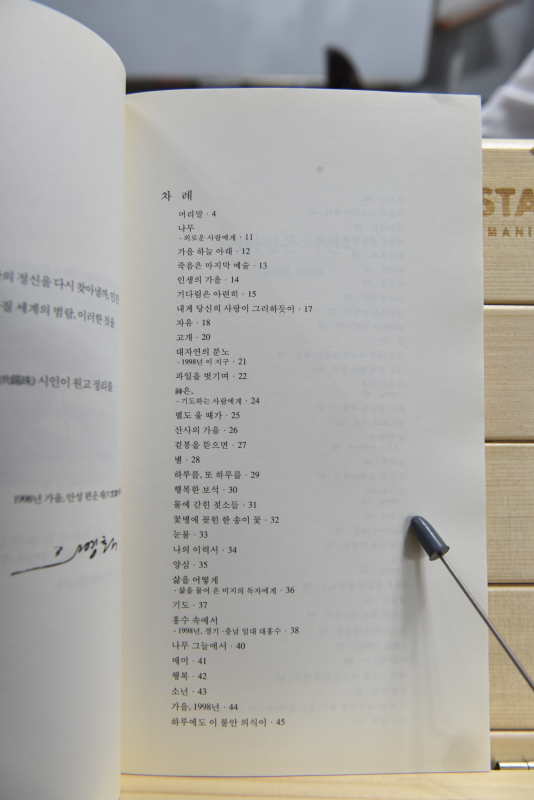 의 정신을 다시 찾아낼까,
질 세계의 범람, 이러한 것을
시인이 원고 정리를
1998년 가을, 안성 편운
차 례
머리말 · 4
나무
- 외로운 사람에게 · 11
가을 하늘 아래 · 12
죽음은 마지막 예술 · 13
인생의 가을 · 14
기다림은 아련히 · 15
내게 당신의 사랑이 그러하듯이 · 17
자유 · 18
고개 · 20
대자연의 분노
- 1998년 이 지구 · 21
파일을 벗기며 · 22
神은,
- 기도하는 사람에게 · 24
별도 울 때가 · 25
산사의 가을 · 26
겉봉을 뜯으면 · 27
벌 · 28
하루를, 또 하루를 · 29
행복한 보석 · 30
물에 갇힌 젖소들 · 31
꽃병에 꽂힌 한 송이 꽃 · 32
눈물 · 33
나의 이력서 · 34
양심 · 35
삶을 어떻게
- 삶을 물어 온 미지의 독자에게 · 36
기도 · 37
홍수 속에서
- 1998년, 경기 · 충남 일대 대홍수 · 38
나무 그늘에서 · 40
매미 · 41
행복 · 42
소년 · 43
가을, 1998년 · 44
하루에도 이 불안 의식이 · 45
STA
MANI